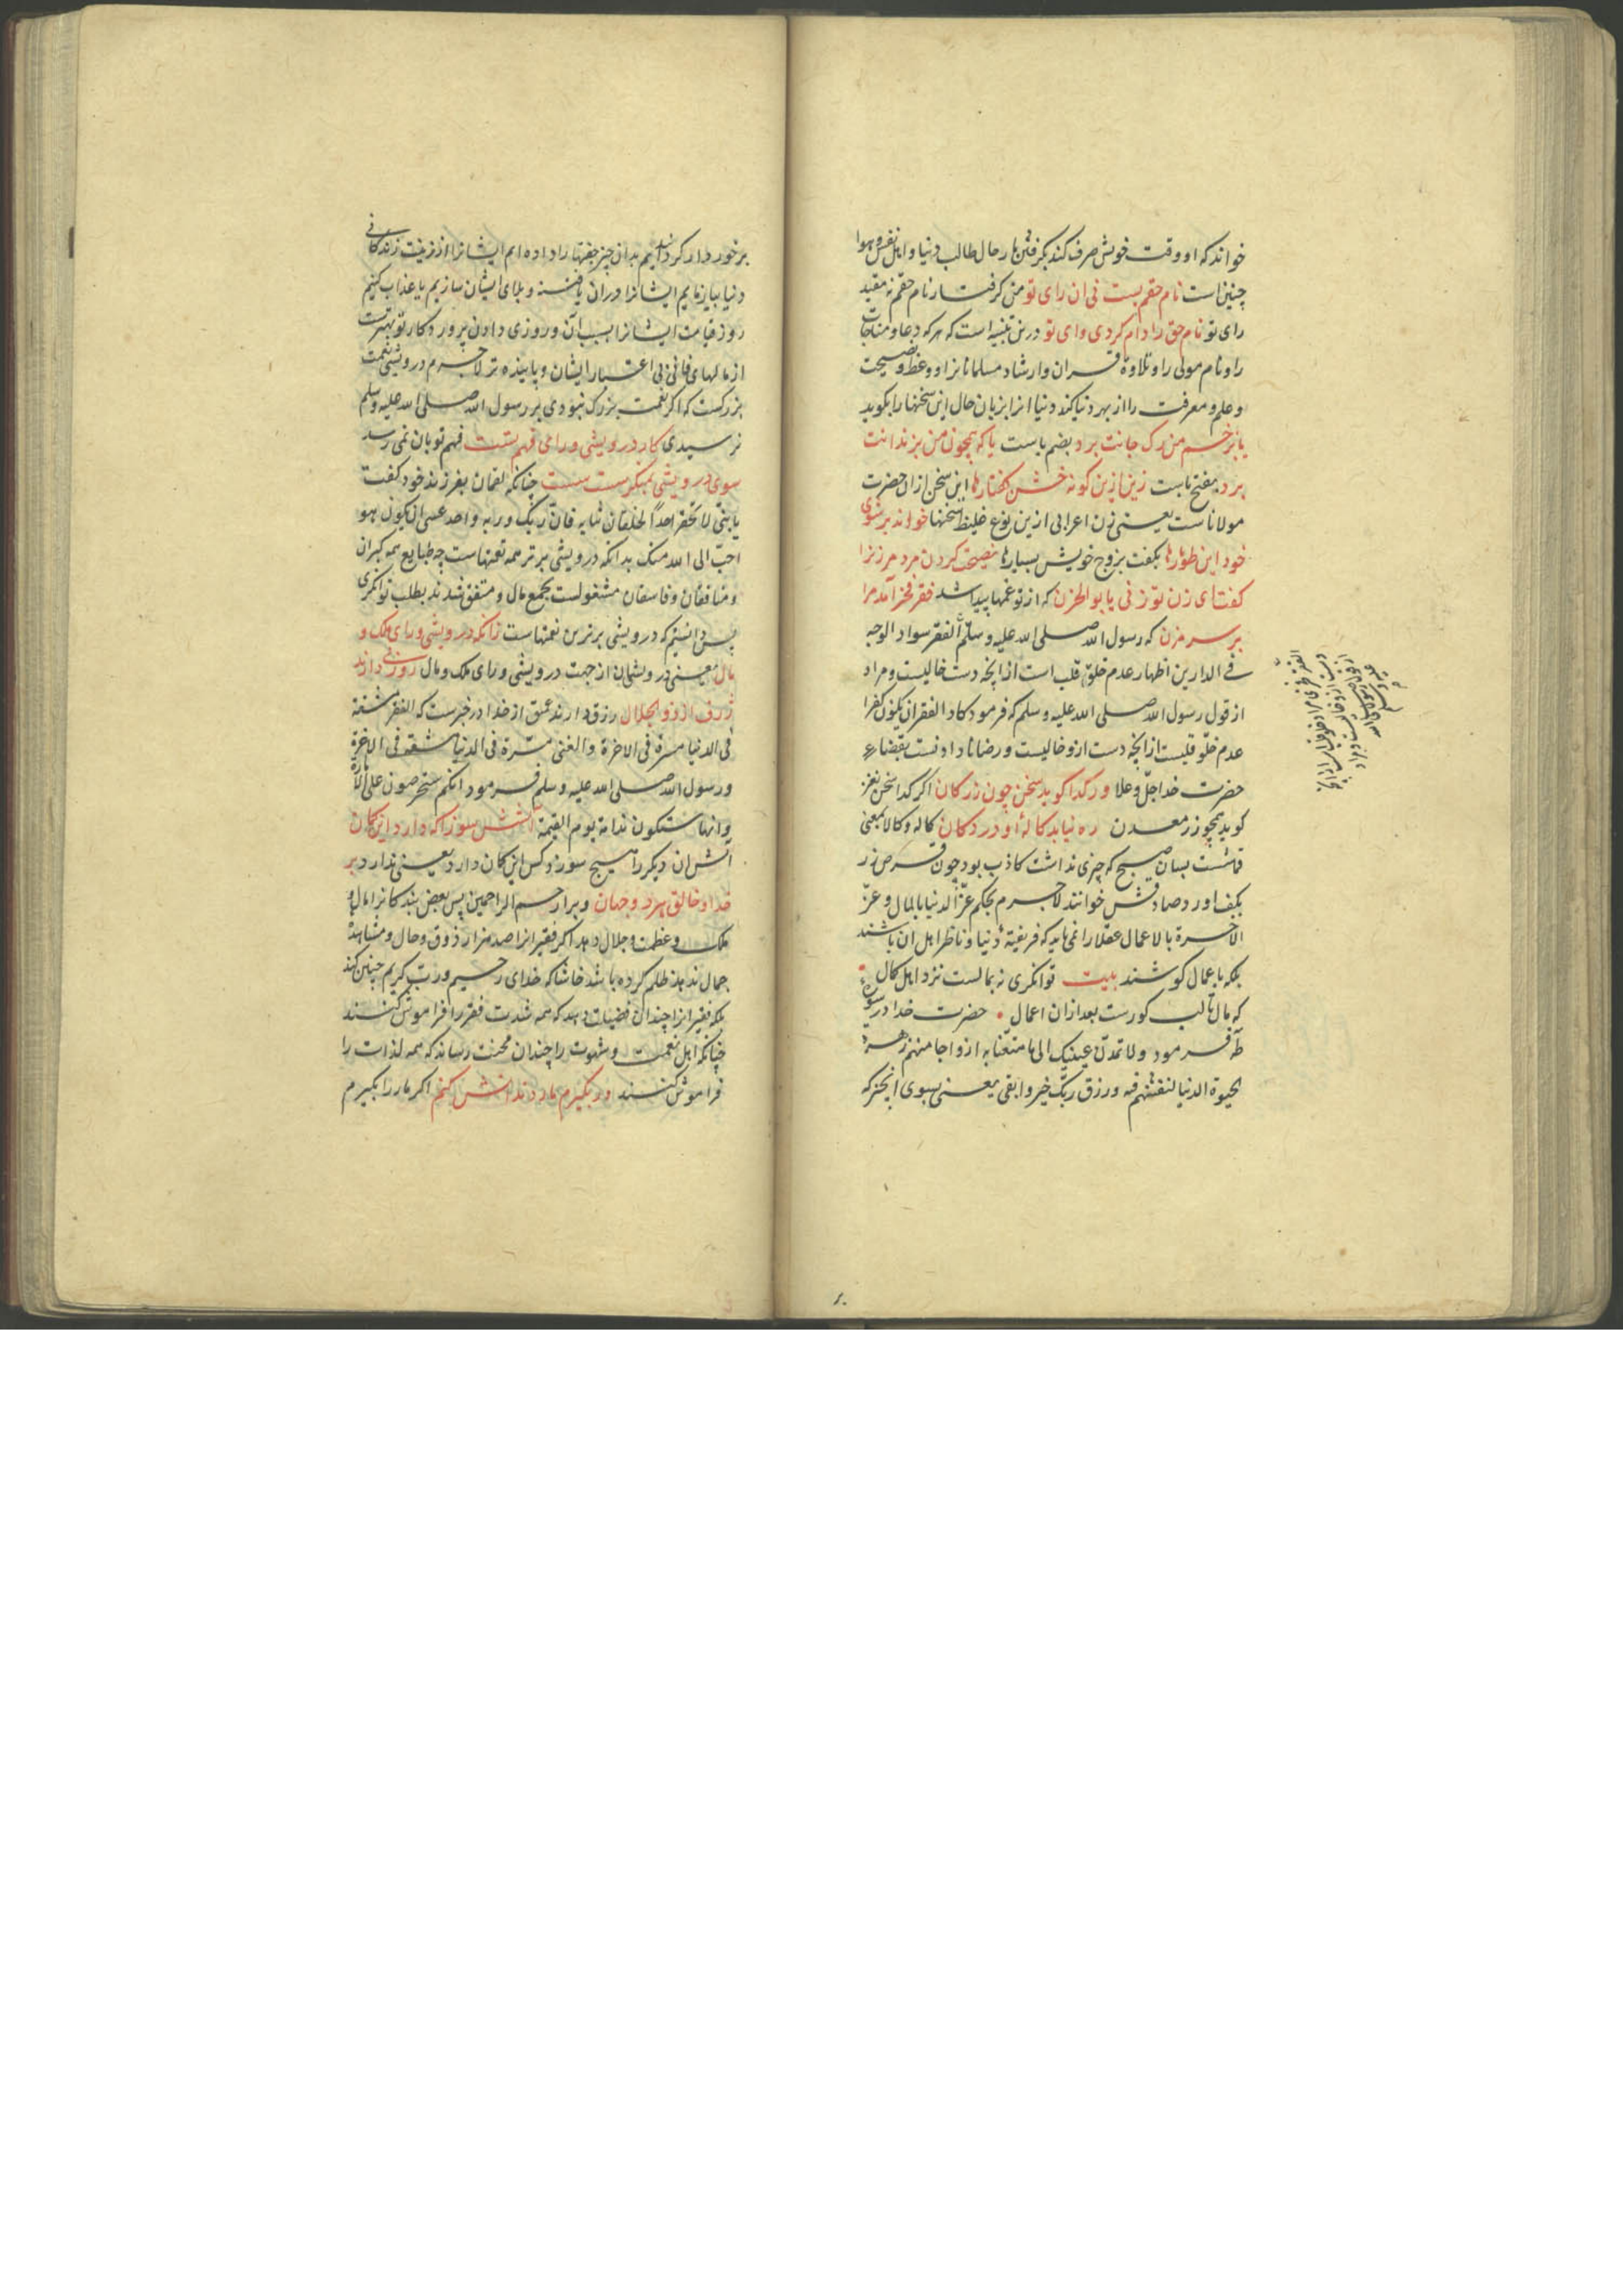 خواند که او وقت خویش صرف کند بکرفتن مار حال طالب دنیا و اهل نفس و هوا
چنین است نام حقم بست نی ان رای تو من کرفتار نام حقم نه مقید
رای تو نام حق را دام کردی وای تو درین تنبیه است که هر که دعا و مناجات
را و نام مولی را و تلاوة قران و ارشاد مسلمانانرا و وعظ و نصیحت
و علم و معرفت را از بهر دنیا کند دنیا انرا بزبان حال این سخنها را بکوید
یا بزخم من رک جانت برد بضم باست یا که همچون من بزندانت
برد بفتح باست زین ازین کونه خشن کفتارها این سخن ازان حضرت
مولاناست یعنی زن اعرابی ازین نوع غلیظ سخنها خواند بر شوی
خود این طومارها بکفت بزوج خویش بسیارها نصیحت کردن مرد مر زنرا
کفت ای زن تو زنی یا بو الحزن که از تو غمها پیدا شد فقر فخر آمد مرا
بر سر مزن که رسول الله صلی الله علیه و سلم الفقر سواد الوجه
فی الدارین اظهار عدم خلو قلب است از انچه دست خالیست و مراد
از قول رسول الله صلی الله علیه وسلم که فرمود کاد الفقر ان یکون کفرا
عدم خلو قلبست از انچه دست ازو خالیست و رضا نا دادنست بقضاء
حضرت خدا جل و علا ور کدا کوید سخن چون زر کان اکر کدا سخن نغز
کوید همچو زر معدن ره نیابد کالهٔ او در دکان کاله و کالا بمعنی
قماشت بسان صبح که چیزی نداشت کاذب بود چون قرص زر
بکف اورد صادقش خوانند لاجرم بحکم عز الدنیا بالمال و عز
الاخرة بالاعمال عقلا را نمی باید که فریفتهٔ دنیا و ناظر اهل ان باشند
بلکه با عمال کوشند بیت توانکری نه بمالست نزد اهل کمال
که مال تا لب کورست بعد ازان اعمال حضرت خدا در سورهٔ
طه فرمود ولا تمدن عینیک الی ما متعنا به ازواجا منهم زهرة
الحیوة الدنیا لنفتنهم فیه و رزق ربک خیر و ابقی یعنی بسوی انچیز که
برخوردار کردانیم بدان چیز جفتها را داده ایم ایشانرا از زینت زندکانی
دنیا بیازمایم ایشانرا دران یا فتنه و بلای ایشان سازیم یا عذاب کنیم
روز قیامت ایشانرا بسبب آن و روزی دادن پروردکار تو بهترست
از مالهای فانی بی اعتبار ایشان و پاینده تر لاجرم درویشی نعمت
بزرکست که اکر نعمت بزرک نبودی بر رسول الله صلی الله علیه وسلم
نرسیدی کار درویشی ورای فهم تست فهم تو بان نمی رسد
سوی درویشی بمنکر سست سست چنانکه لقمان بفرزند خود کفت
یا بنی لا تحقر احدا لخلقان ثیابه فان ربک و ربه واحد عسی ان یکون هو
احب الی الله منک بدانکه درویشی برتر همه نعتهاست چه طبایع همه کبران
و منافقان و فاسقان مشغولست بجمع مال و متفق شدند بطلب توانکری
پس دانستیم که درویشی برترین نعمتهاست زانکه درویشی ورای ملک و
مال یعنی درویشان از جهت درویشی ورای ملک و مال روزئی دارند
ژرف از ذو الجلال رزق دارند عمیق از خدا در خبرست که الفقر مشقة
فی الدنیا مسرة فی الاخرة والغنی مسرة فی الدنیا مشقة فی الاخرة
و رسول الله صلی الله علیه وسلم فرمود انکم ستحرصون علی الامارة
وانها ستکون ندامة یوم القیمة آتشش سوزا که دارد این کمان
آتش ان دیکر را هیچ سوزد کس این کمان دارد یعنی ندارد بر
خدا و خالق هر دو جهان و بر ارحم الراحمین پس بعض بندکانرا مال و
ملک و عظمت و جلال دهد اکر فقیرانرا صد هزار ذوق و حال و مشاهدهٔ
جمال ندهد ظلم کرده باشد حاشا که خدای رحیم و رب کریم چنین کند
بلکه فقیرانرا چندان فضیلت دهد که همه شدت فقر را فراموش کنند
چنانکه اهل نعمت و شهوت را چندان محنت رساند که همه لذات را
فراموش کنند ور بکیرم مار دندانش کنم اکر مار را بکیرم